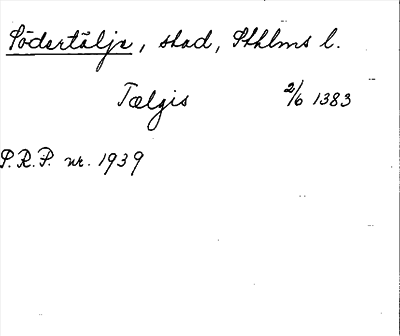 Södertälje, stad, Sthlms l.
Tælgis 2/6 1383
P.R.P. nr. 1939